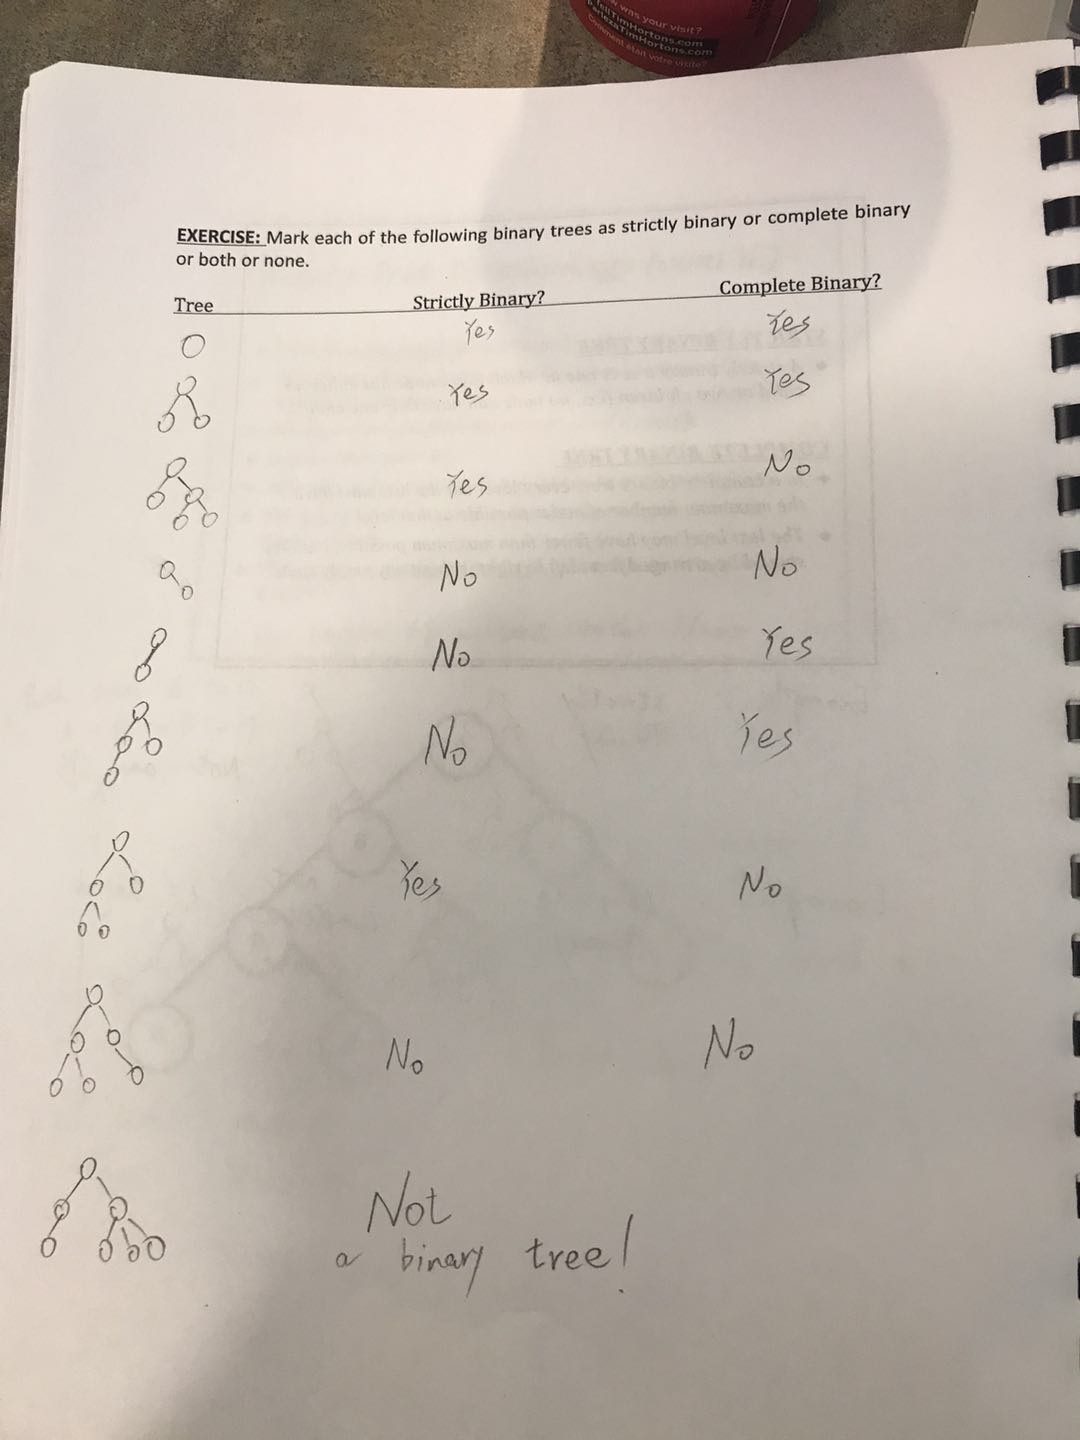 was your visit?
TellTimHortons.com
ParlezaTimHortons.com
Comment était votre visite?
EXERCISE: Mark each of the following binary trees as strictly binary or complete binary
or both or none.
Tree Strictly Binary? Complete Binary?
Yes Yes
Yes Yes
Yes No
No No
No Yes
No Yes
Yes No
No No
Not
a binary tree!